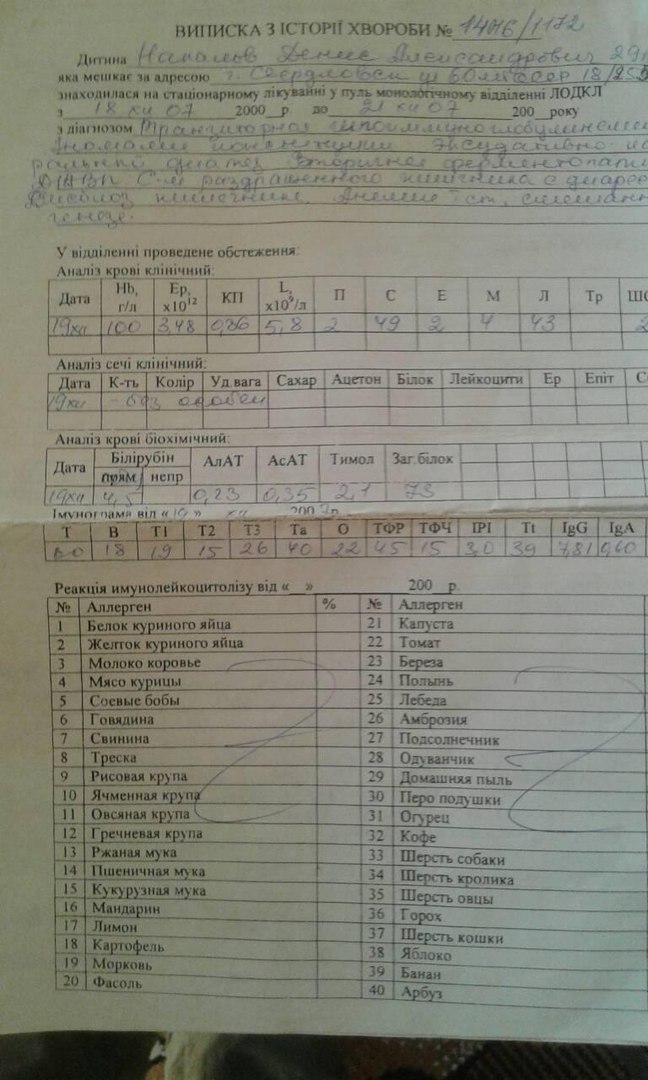 ВИПИСКА З ІСТОРІЇ ХВОРОБИ № 14076/1172
Дитина Денис Александрович
яка мешкає за адресою г. Свердловск
знаходилася на стаціонарному лікуванні у пуль монологічному відділенні ЛОДКЛ
з 18 XII 07 2000 р. до 21 XII 07 200 року
з діагнозом Транзиторная
Аномалия конституции Экссудативно
диатез Вторичная
раздраженного кишечника с
кишечника, Анемия I ст.
генеза.
У відділенні проведене обстеження:
Аналіз крові клінічний:
Дата Hb, г/л Ер, х10¹² КП L, х10⁹/л П С Е М Л Тр
19 XII 100 3,48 0,86 5,8 2 49 2 4 43
Аналіз сечі клінічний:
Дата К-ть Колір Уд.вага Сахар Ацетон Білок Лейкоцити Ер Епіт
19 XII - без особен
Аналіз крові біохімічний:
Дата Білірубін АлАТ АсАТ Тимол Заг.білок
прям непр
19 XII 4,5 0,23 0,35 2,1 73
Імунограма від « 19 » XII 200 7р.
Т В Т1 Т2 Т3 Та О ТФР ТФЧ ІРІ Tt IgG IgA
18 19 15 26 40 22 45 15 3,0 39 7,81 0,60
Реакція имунолейкоцитолізу від « » 200 р.
№ Аллерген % № Аллерген
1 Белок куриного яйца 21 Капуста
2 Желток куриного яйца 22 Томат
3 Молоко коровье 23 Береза
4 Мясо курицы 24 Полынь
5 Соевые бобы 25 Лебеда
6 Говядина 26 Амброзия
7 Свинина 27 Подсолнечник
8 Треска 28 Одуванчик
9 Рисовая крупа 29 Домашняя пыль
10 Ячменная крупа 30 Перо подушки
11 Овсяная крупа 31 Огурец
12 Гречневая крупа 32 Кофе
13 Ржаная мука 33 Шерсть собаки
14 Пшеничная мука 34 Шерсть кролика
15 Кукурузная мука 35 Шерсть овцы
16 Мандарин 36 Горох
17 Лимон 37 Шерсть кошки
18 Картофель 38 Яблоко
19 Морковь 39 Банан
20 Фасоль 40 Арбуз